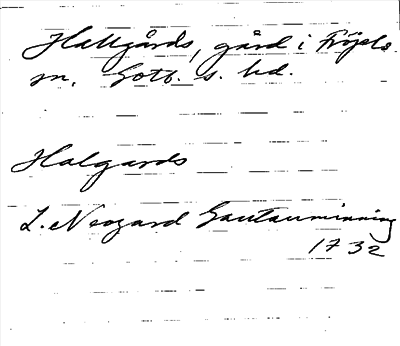 Hallgårds, gård i Fröjels
sn. Gotl. s. hd.
Halgards
L. Neogard Gautauminning
1732